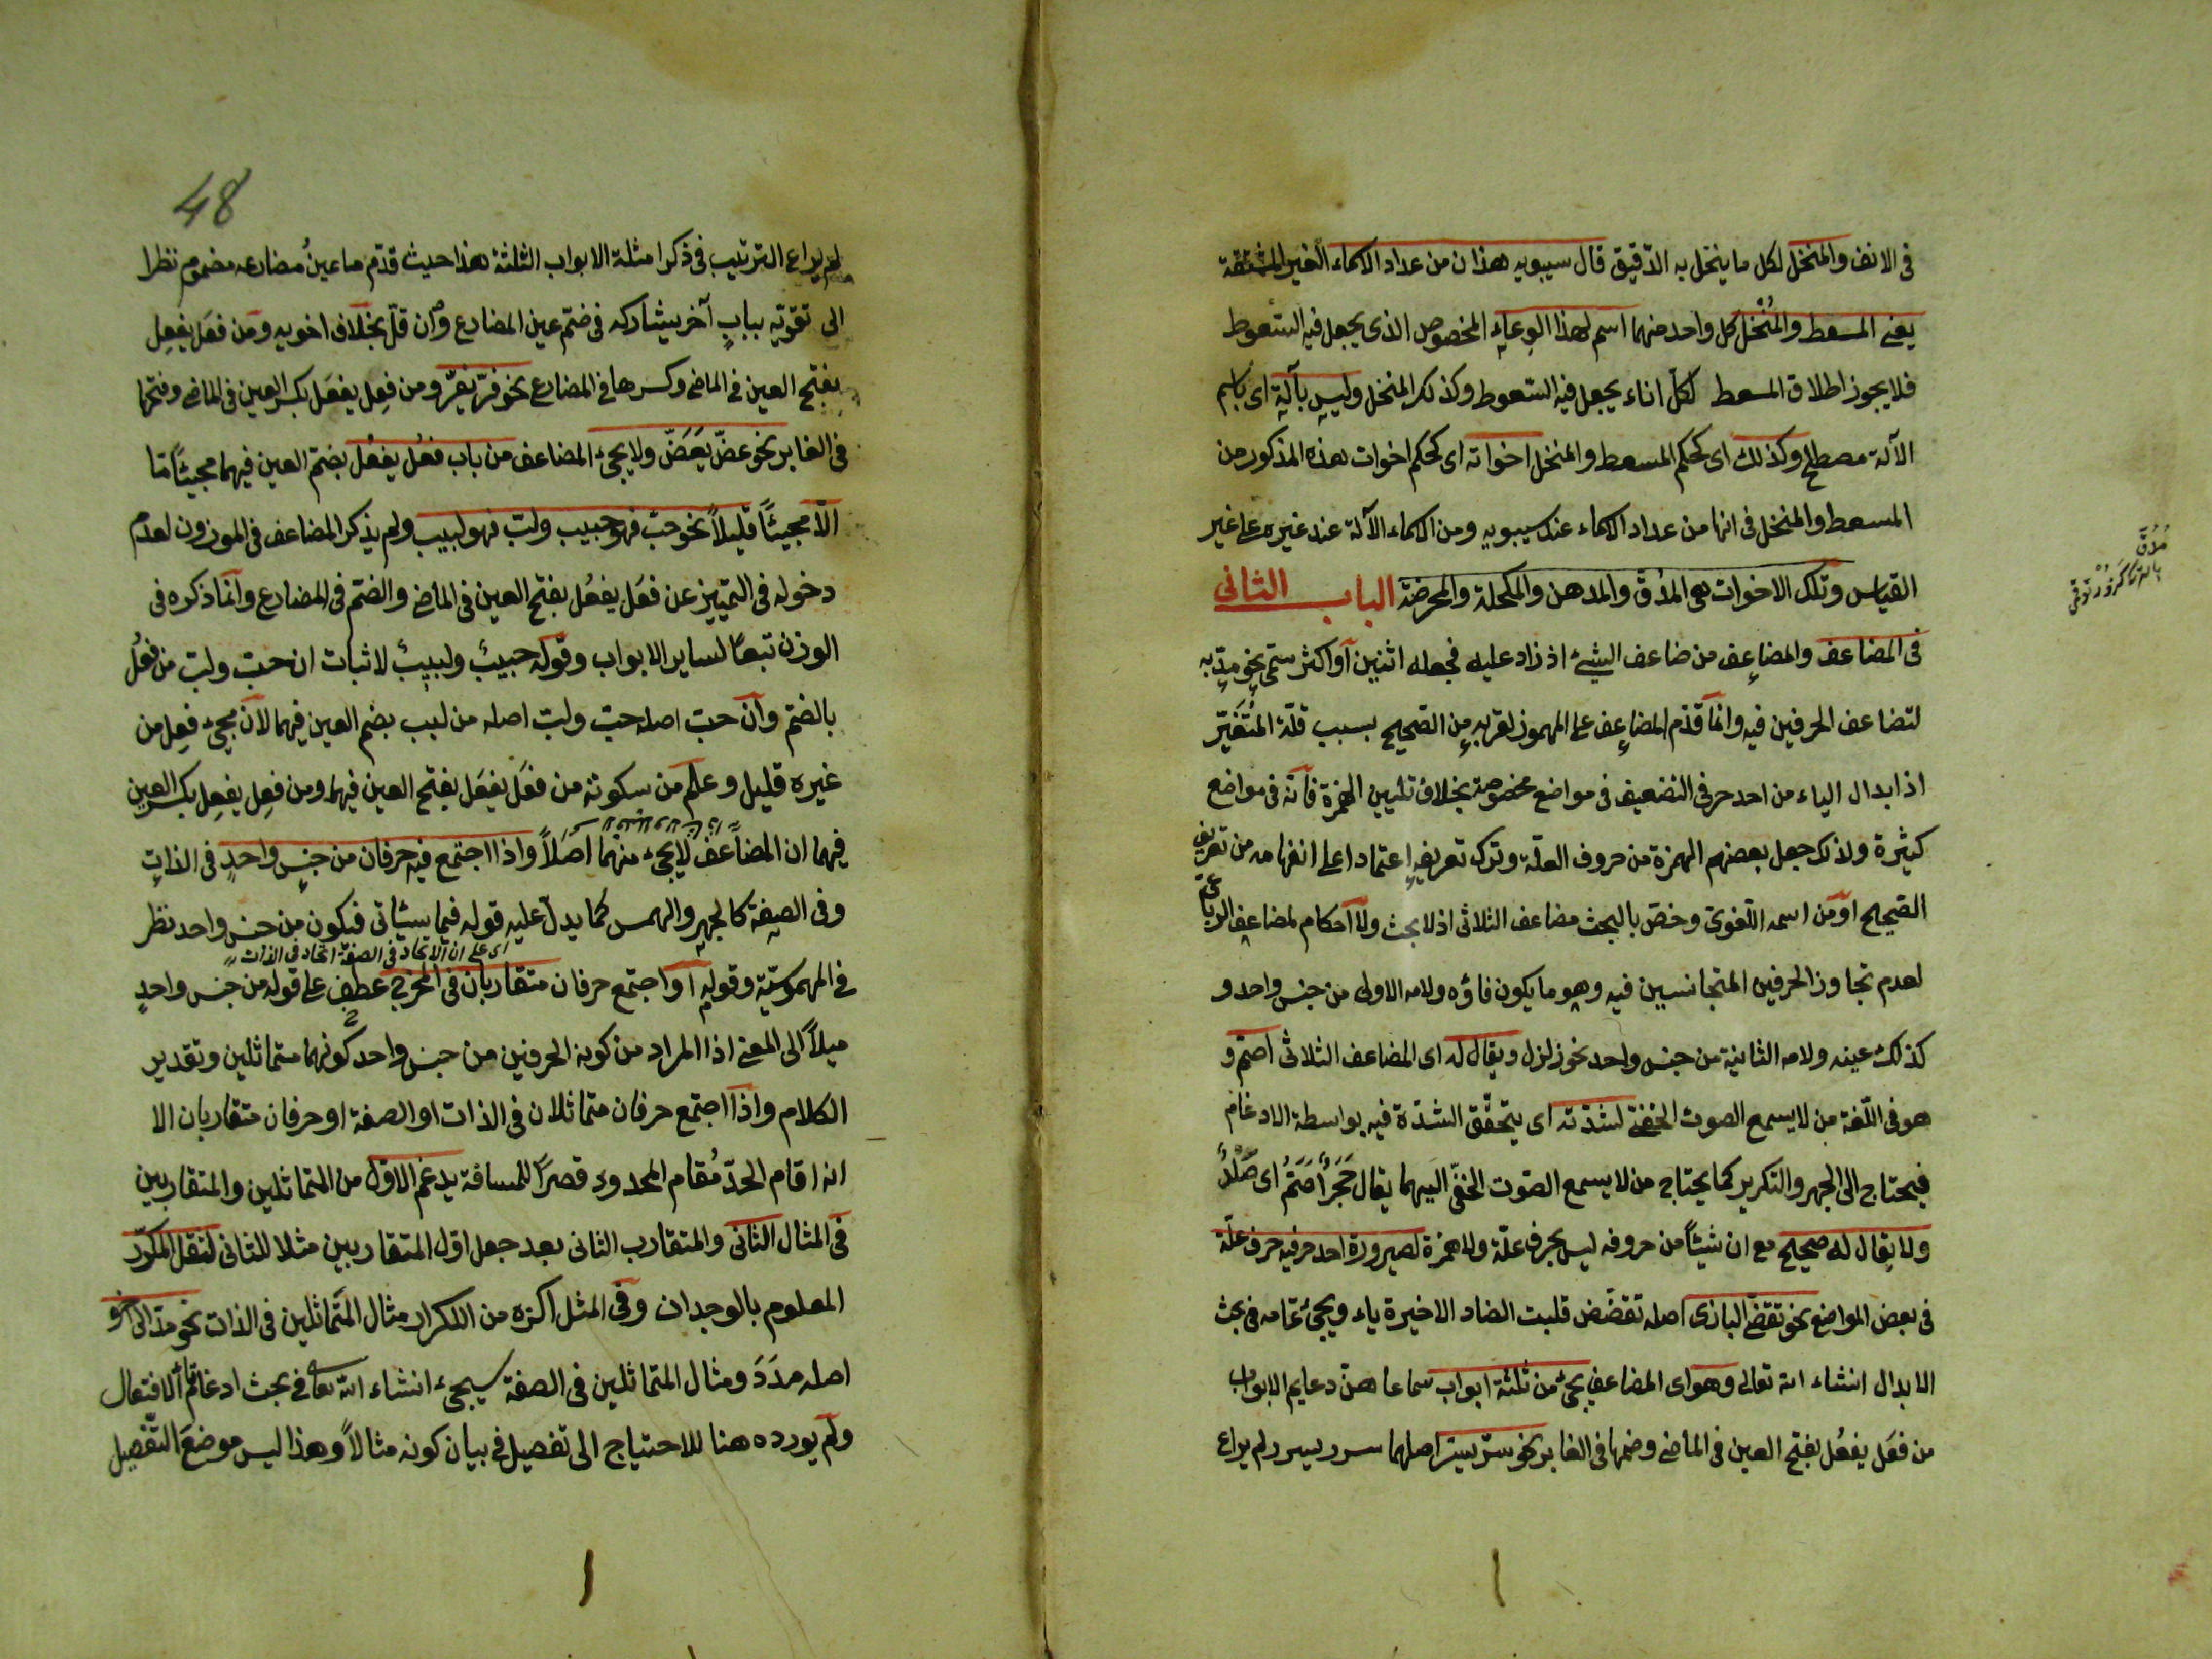 فى الانف والمنخل لكل ما ينخل به الدقيق قال سيبويه هذان من عداد الاسماء الغير المشتقة
يعنى المسعط والمُنْخل كل واحد منهما اسم لهذا الوعاء المخصوص الذى يجعل فيه السّعوط
فلا يجوز اطلاق المسعط لكلّ اناء يجعل فيه السّعوط وكذلك المنخل وليس بآلة اى باسم
الآلة مصطلح وكذلك اى كحكم المسعط والمنخل اخواته اى كحكم اخوات هذه المذكور من
المسعط والمنخل فى انها من عداد الاسماء عند سيبويه ومن الاسماء الآلة عند غيره على غير
القياس وتلك الاخوات هى المدُقّ والمدهن والمكحلة والمحرضة الباب الثانى
فى المضاعف والمضاعِف من ضاعف الشئ اذ زاد عليه فجعله اثنين او اكثر سمّى نحو مدّ به
لتضاعف الحرفين فيه وانما قدّم المضاعف على المهموز لقربه من الصّحيح بسبب قلّة المُتَغَيّر
اذ ابدال الياء من احد حرفى التضعيف فى مواضع مخصوصة بخلاف تليين الهمزة فانه فى مواضع
كثيرة ولذلك جعل بعضهم الهمزة من حروف العلّة وترك تعريفه اعتمادا على انفهامه من تعريف
الصّحيح او من اسمه اللّغوىّ وخصّ بالبحث مضاعف الثلاثى اذ لا بحث ولا احكام لمضاعف الرباعىّ
لعدم تجاوز الحرفين المتجانسين فيه وهو ما يكون فاؤه ولامه الاولى من جنس واحد و
كذلك عينه ولامه الثانية من جنس واحد نحو زلزل ويقال له اى المضاعف الثلاثى اصمّ و
هو فى اللّغة من لا يسمع الصوت الخفىّ لشدّته اى يتحقّق الشدّة فيه بواسطة الادغام
فيحتاج الى الجهر والتكرير كما يحتاج من لا يسمع الصّوت الخفىّ اليهما يقال حَجَرٌ أَصَمُّ اى صَلْدٌ
ولا يقال له صحيح مع ان شيئاً من حروفه ليس بحرف علّة ولا همزة لصيرورة احد حرفيه حرف علّة
فى بعض المواضع نحو تقضّى البازى اصله تقضّض قلبت الضاد الاخيرة ياء ويجئ تمامه فى بحث
الابدال انشاء الله تعالى وهو اى المضاعف يجئ من ثلثة ابواب سماعا هنّ دعايم الابواب
من فعَل يفعُل بفتح العين فى الماضى وضمها فى الغابر نحو سرّ يسرّ اصلهما سرر يسرر لم يراع
مُدُقّ
لم يراع الترتيب فى ذكر امثلة الابواب الثلثة هذا حيث قدّم ما عينُ مضارعه مضموم نظرا
الى تقوّيه ببابٍ آخر يشاركه فى ضمّ عين المضارع وان قلّ بخلاف اخويه ومن فعَل يفعِل
بفتح العين فى الماضى وكسرها فى المضارع نحو فرّ يفرّ ومن فعِل يفعَل بكسر العين فى الماضى وفتحها
فى الغابر نحو عضّ يَعَضّ ولا يجئ المضاعف من باب فعُل يفعُل بضمّ العين فيهما مجيئاً مّا
الّا مجيئاً قليلاً نحو حبّ فهو حبيب ولبّ فهو لبيب ولم يذكر المضاعف فى الموزون لعدم
دخوله فى التمييز عن فعَل يفعُل بفتح العين فى الماضى والضمّ فى المضارع وانما ذكره فى
الوزن تبعًا لساير الابواب وقوله حبيبٌ ولبيبٌ لاثبات ان حبّ ولبّ من فعُل
بالضمّ وان حبّ اصله حبب ولبّ اصله من لبب بضم العين فيهما لان مجئ فعِل من
غيره قليل وعلم من سكوته من فعَل يفعَل بفتح العين فيهما ومن فعِل يفعِل بكسر العين
فيهما ان المضاعف لا يجئ منهما اصلاً واذا اجتمع فيه حرفان من جنس واحدٍ فى الذاتِ
وفى الصفة كالجهر والهمس كما يدلّ عليه قوله فيما سيأتى فيكون من جنس واحد نظر
اى على ان الاتحاد فى الصفة اتحاد فى الذات
فى المهموسيّة وقوله او اجتمع حرفان متقاربان فى المخرج عطف على قوله من جنس واحدٍ
ميلاً الى المعنى اذ المراد من كون الحرفين من جنس واحد كونهما متماثلين وتقدير
الكلام واذا اجتمع حرفان متماثلان فى الذات او الصفة او حرفان متقاربان الا
انه اقام الحدّ مُقام المحدود قصراً للمسافة يدغم الاوّل من المتماثلين والمتقاربين
فى المثال الثانى والمتقارب الثانى بعد جعل اوّل المتقاربين مثلا للثانى لثقل المكرّر
المعلوم بالوجدان وفى المثل اكره من التكرار مثال المتماثلين فى الذات نحو مدّ الى آخره
اصله مدَدَ ومثال المتماثلين فى الصفة سيجئ انشاء الله تعالى فى بحث ادغام تاء الافتعال
ولم يورده هنا للاحتياج الى تفصيل فى بيان كونه مثالاً وهذا ليس موضع التّفصيل
48